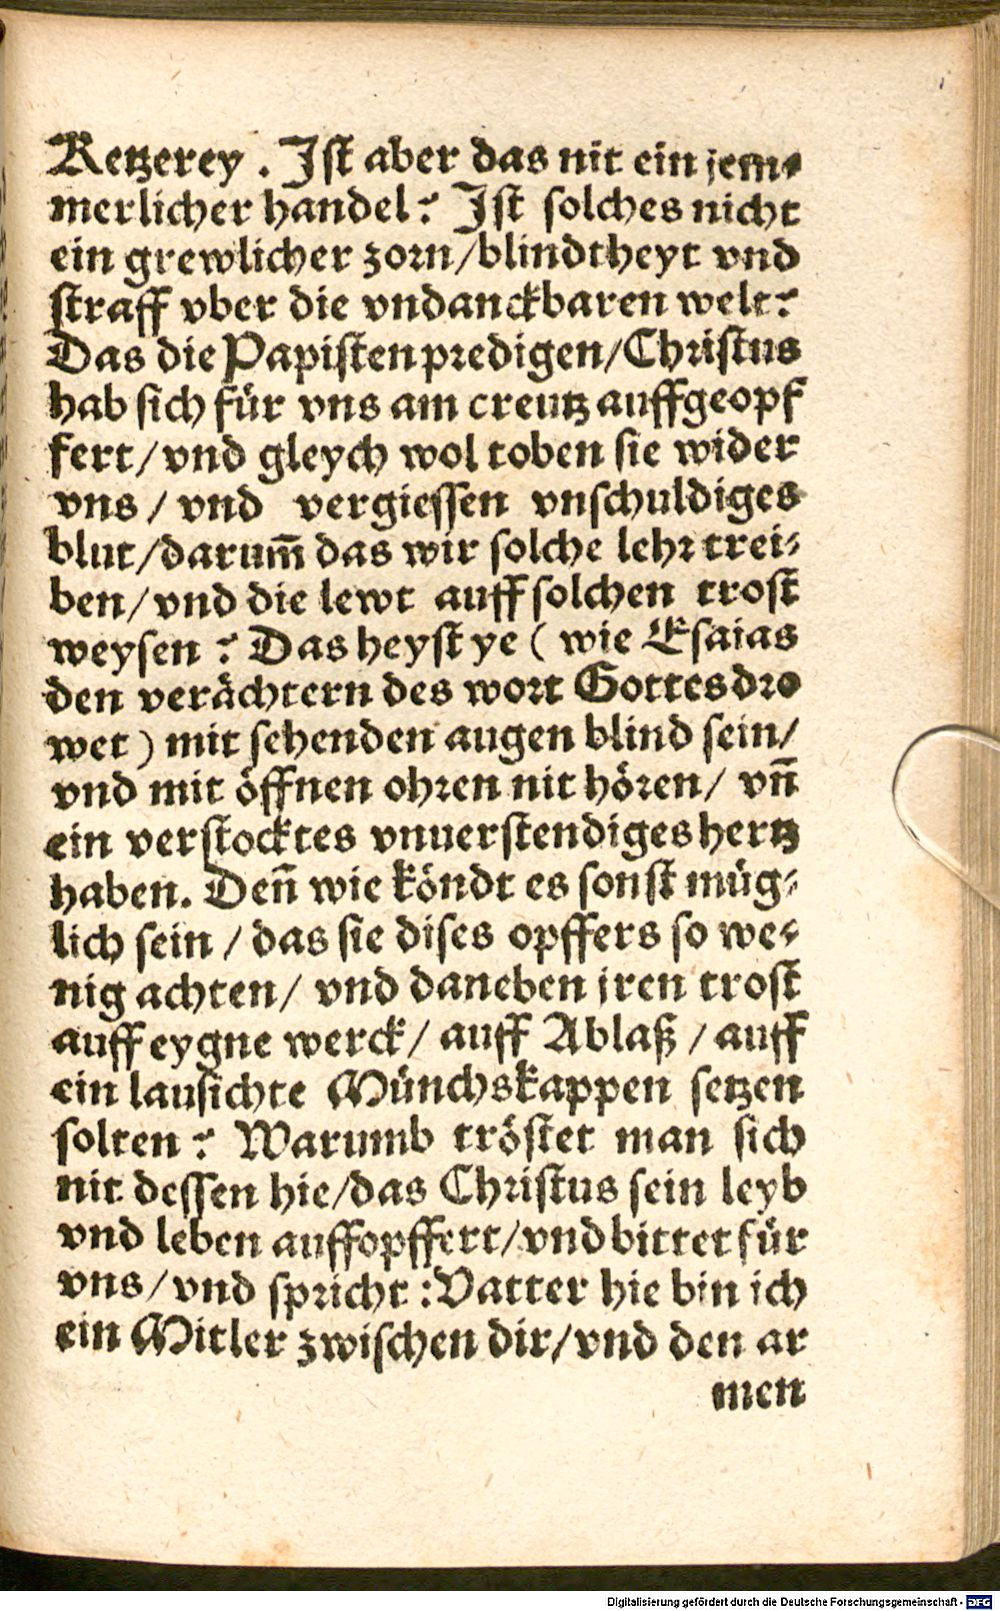 Ketzerey. Ist aber das nit ein jem⸗
merlicher handel? Ist solches nicht
ein grewlicher zorn/blindtheyt vnd
straff vber die vndanckbaren welt?
Das die Papisten predigen/Christus
hab sich für vns am creutz auffgeopf
fert/vnd gleych wol toben sie wider
vns/vnd vergiessen vnschuldiges
blut/darum̃ das wir solche lehr trei⸗
ben/vnd die lewt auff solchen trost
weysen? Das heyst ye (wie Esaias
den verächtern des wort Gottes dro
wet) mit sehenden augen blind sein/
vnd mit öffnen ohren nit hören/vñ
ein verstocktes vnuerstendiges hertz
haben. Deñ wie köndt es sonst müg⸗
lich sein/das sie dises opffers so we⸗
nig achten/vnd daneben jren trost
auff eygne werck/auff Ablaß/auff
ein lausichte Münchskappen setzen
solten? Warumb tröstet man sich
nit dessen hie/das Christus sein leyb
vnd leben auffopffert/vnd bittet für
vns/vnd spricht: Vatter hie bin ich
ein Mitler zwischen dir/vnd den ar
men
Digitalisierung gefördert durch die Deutsche Forschungsgemeinschaft - DFG